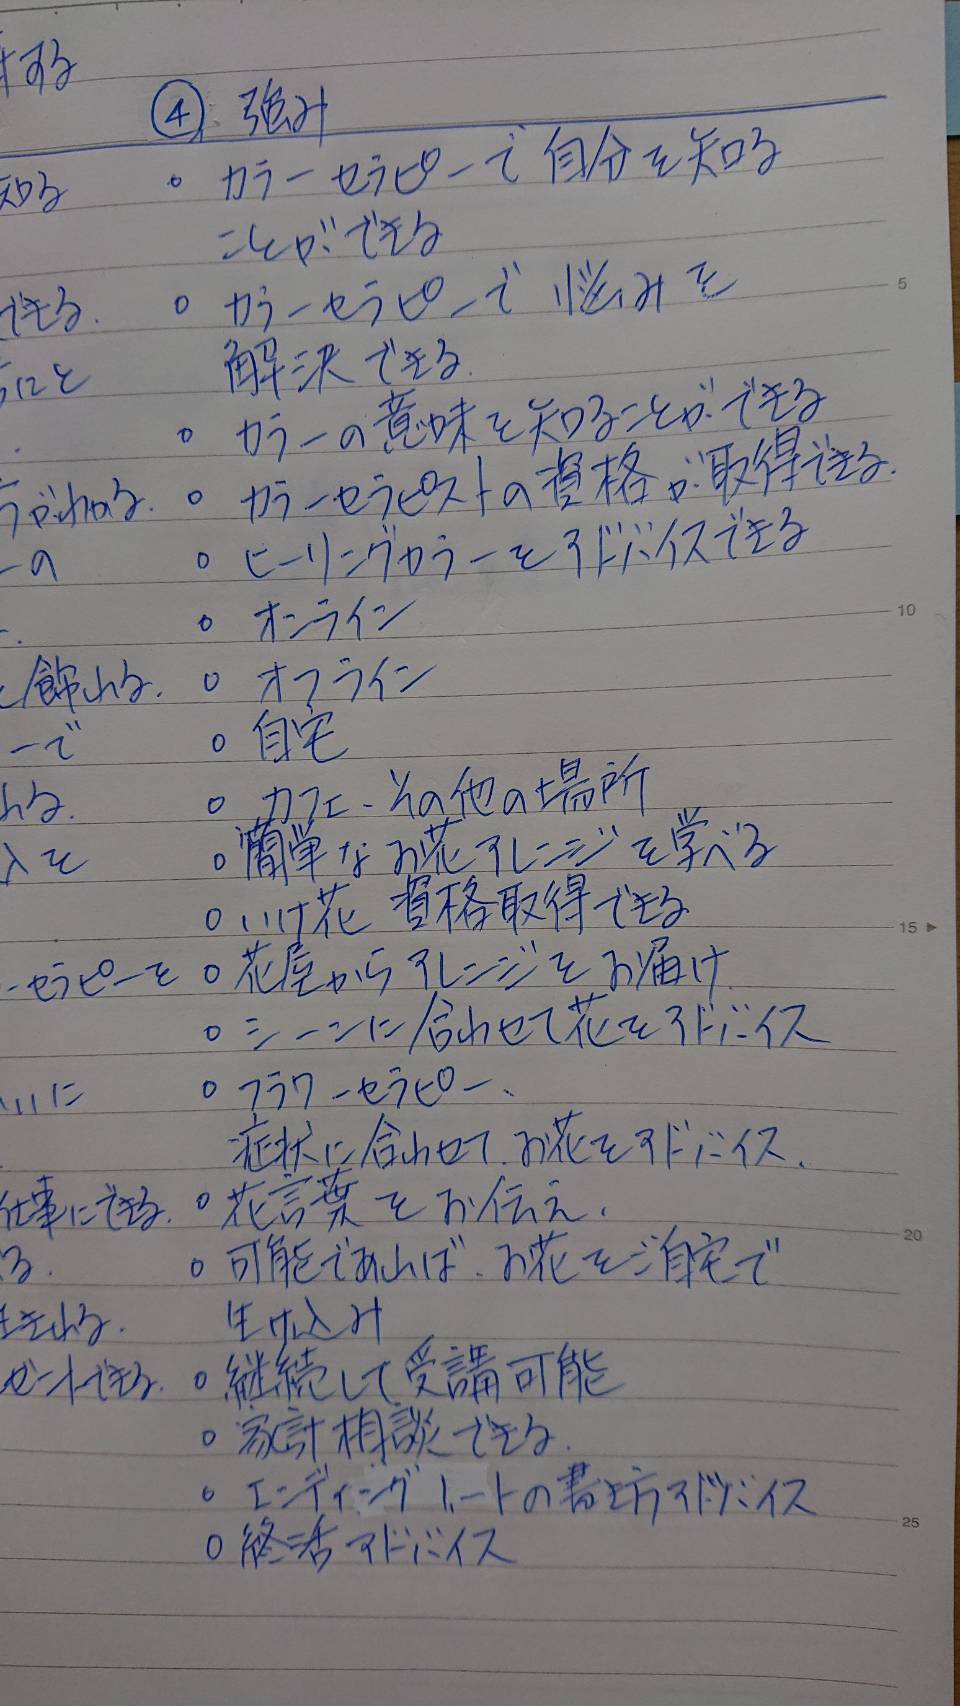 する
④ 強み
知る
○ カラーセラピーで自分を知る
ことができる
できる.
○ カラーセラピーで悩みを
解決できる.
○ カラーの意味を知ることができる
がわかる.
○ カラーセラピストの資格が取得できる.
ーの
○ ヒーリングカラーをアドバイスできる
○ オンライン
飾れる.
○ オフライン
ーで
○ 自宅
れる.
○ カフェ・その他の場所
○ 簡単なお花アレンジを学べる
○ いけ花 資格取得できる
ーセラピーを
○ 花屋からアレンジをお届け
○ シーンに合わせて花をアドバイス
○ フラワーセラピー、
症状に合わせて、お花をアドバイス.
仕事にできる.
○ 花言葉をお伝え.
る.
○ 可能であれば、お花をご自宅で
生け込み
できる.
○ 継続して受講可能
○ 家計相談できる.
○ エンディングノートの書き方アドバイス
○ 終活アドバイス
5
10
15
20
25